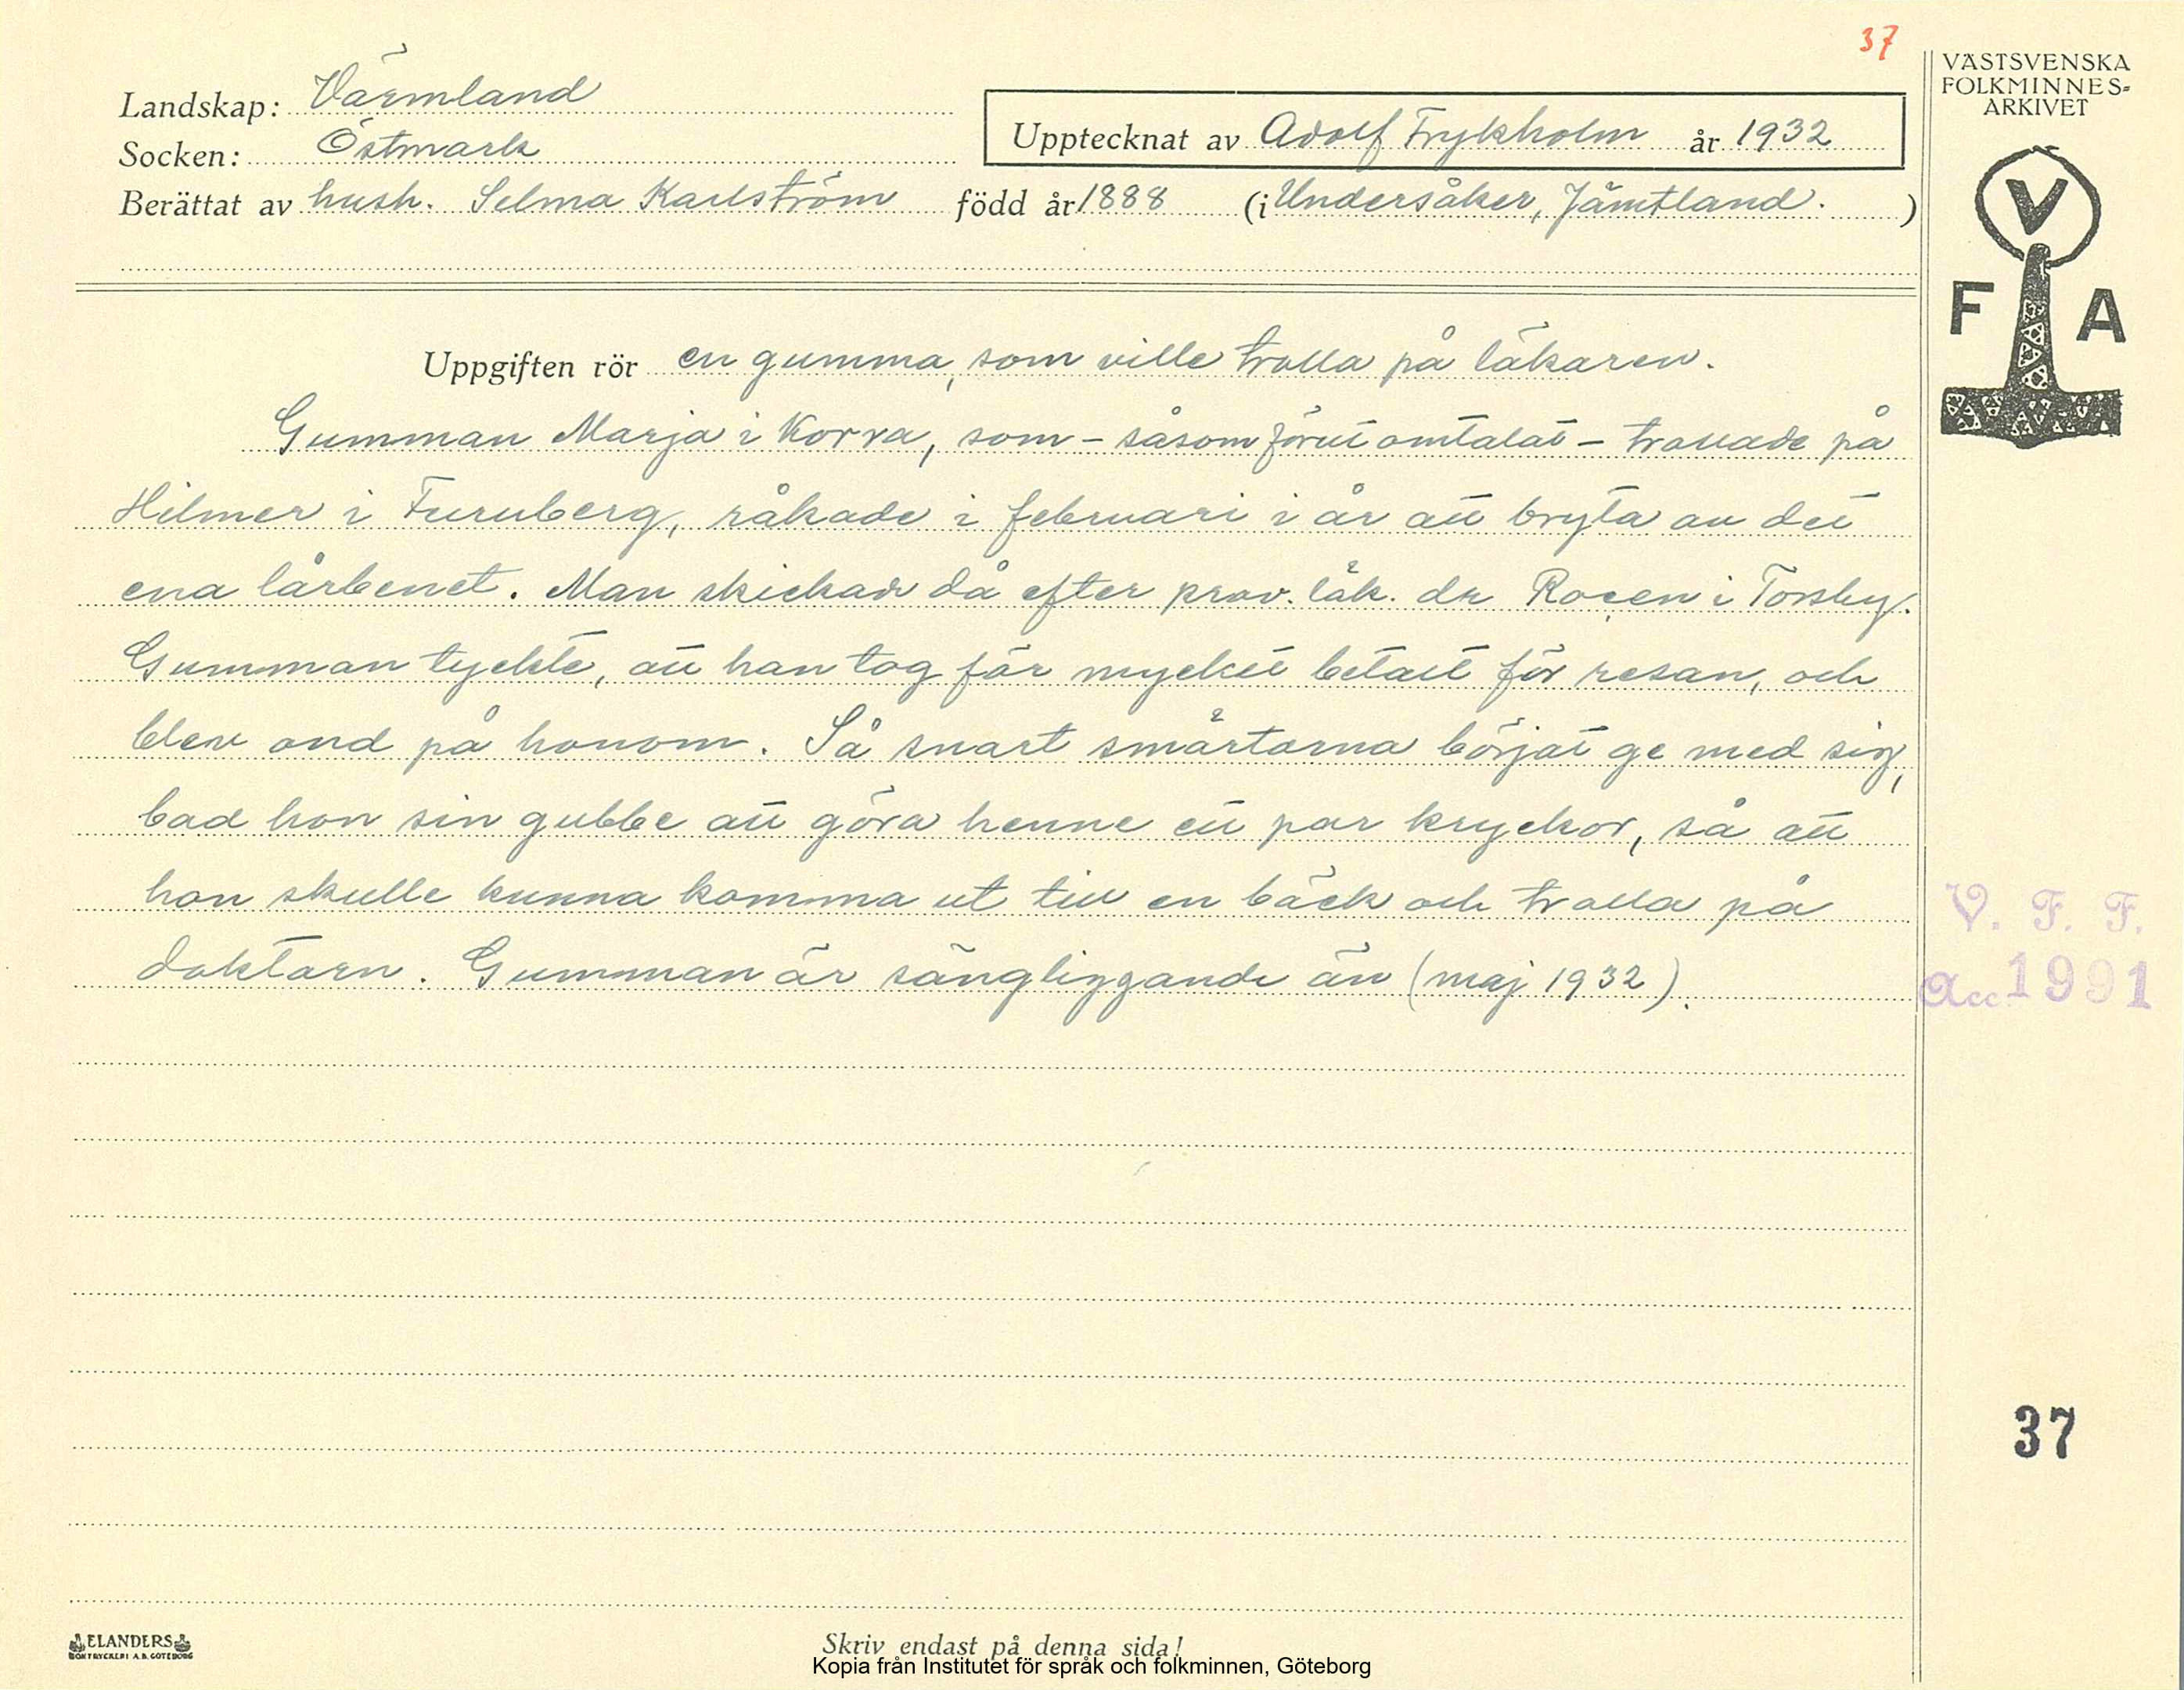 37
VÄSTSVENSKA
FOLKMINNES-
ARKIVET
Landskap: Värmland
Socken: Östmark
Upptecknat av Adolf Frykholm år 1932
Berättat av hush. Selma Karlström född år 1888 (i Undersåker, Jämtland.)
V
F A
Uppgiften rör en gumma, som ville trolla på läkaren.
Gumman Marja i Korra, som – såsom förut omtalat – trollade på
Hilmer i Furuberg, råkade i februari i år att bryta av det
ena lårbenet. Man skickade då efter prov. läk. dr Rosen i Torsby.
Gumman tyckte, att han tog för mycket betalt för resan, och
blev ond på honom. Så snart smärtorna börjat ge med sig,
bad hon sin gubbe att göra henne ett par kryckor, så att
hon skulle kunna komma ut till en bäck och trolla på
doktorn. Gumman är sängliggande än (maj 1932).
V. F. F.
Acc 1991
37
ELANDERS
BOKTRYCKERI A.B. GÖTEBORG
Skriv endast på denna sida!
Kopia från Institutet för språk och folkminnen, Göteborg